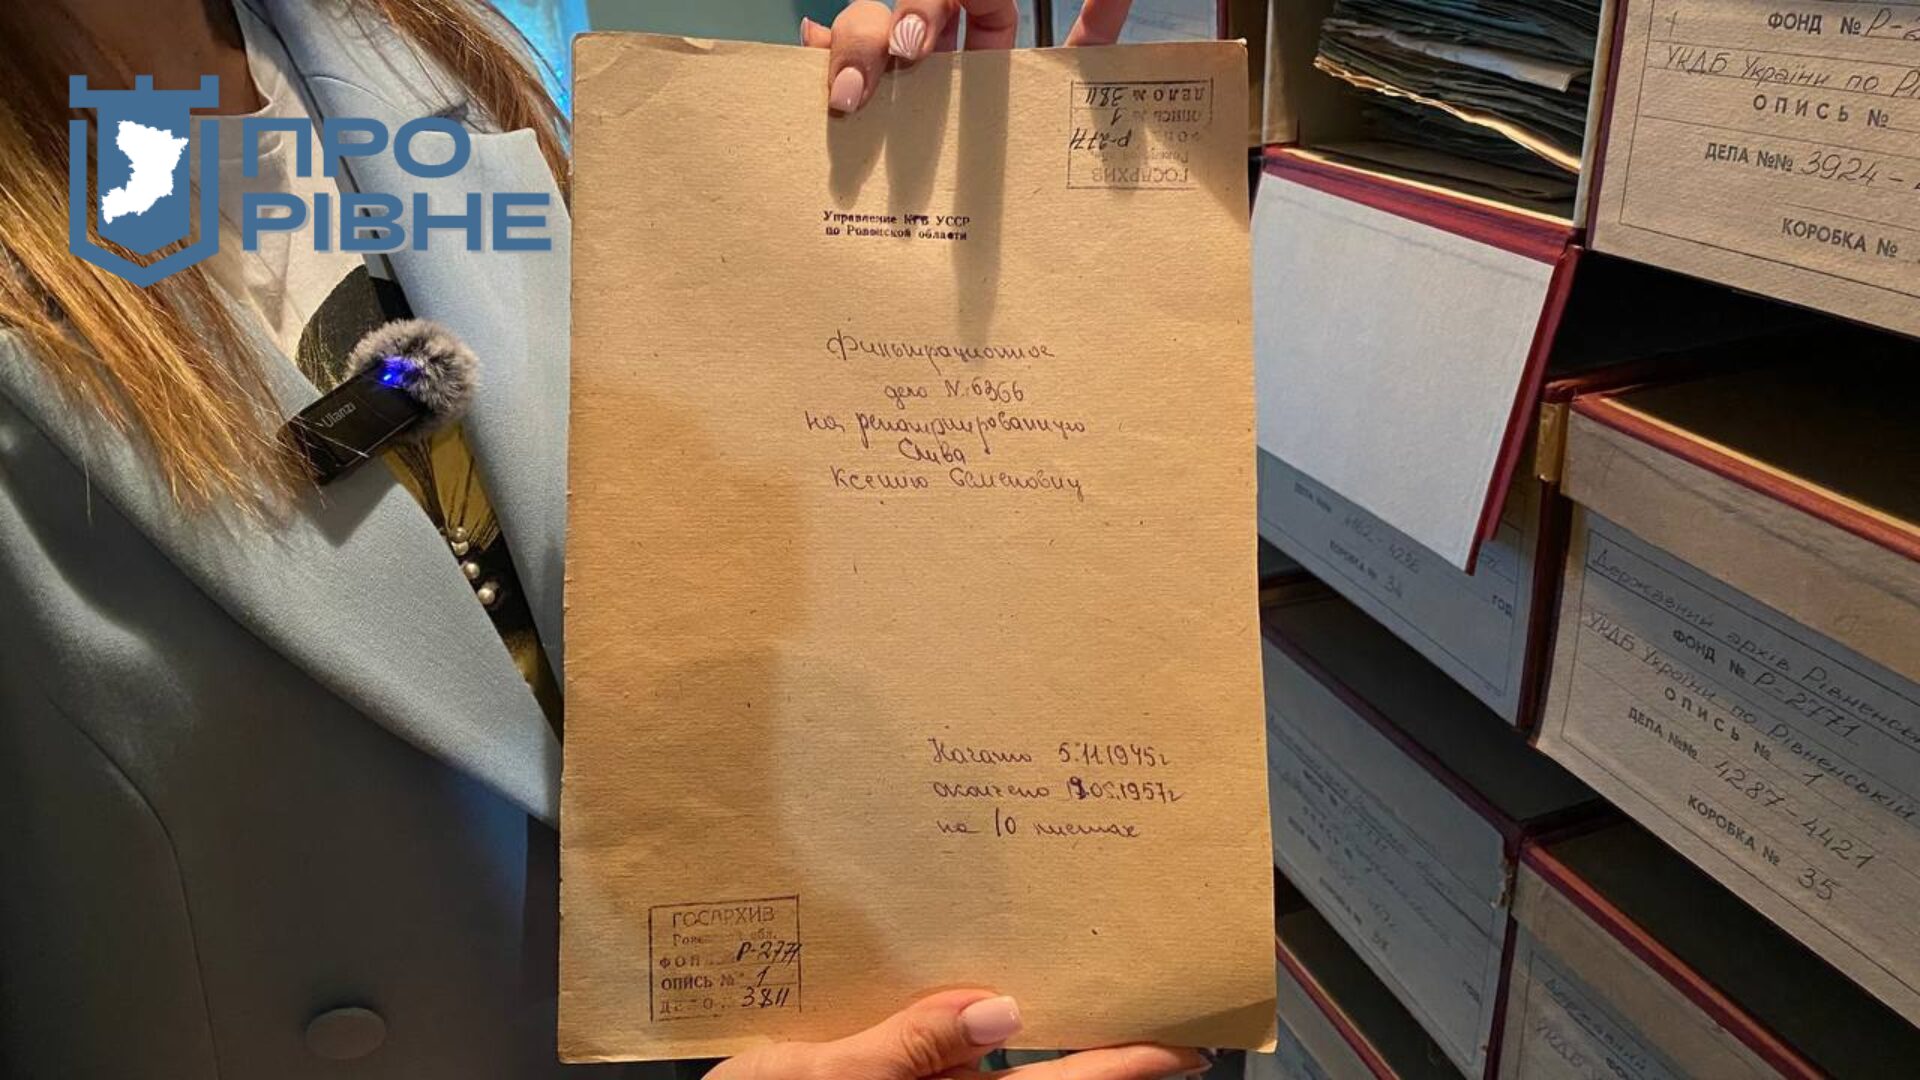 ПРО
РІВНЕ
Ulanzi
ГОСАРХИВ
Р-2771
опись № 1
ДЕЛО № 3811
Управление КГБ УССР
по Ровенской области
Фильтрационное
дело №6366
на репатриированную
Слива
Ксению Семеновну
Начато 5.11.1945г
окончено 19.05.1957г
на 10 листах
ГОСАРХИВ
обл.
ФОН Р-2771
ОПИСЬ № 1
ДЕЛО 3811
ФОНД № Р-2
УКДБ України по Рі
ОПИСЬ №
ДЕЛА №№ 3924 -
КОРОБКА №
ДЕЛА №№ 4162-4286
КОРОБКА № 34
ГОД
Державний архів Рівненської
ФОНД № Р-2771
УКДБ України по Рівненській
ОПИСЬ № 1
ДЕЛА №№ 4287-4421
КОРОБКА № 35
Державний
УКДБ